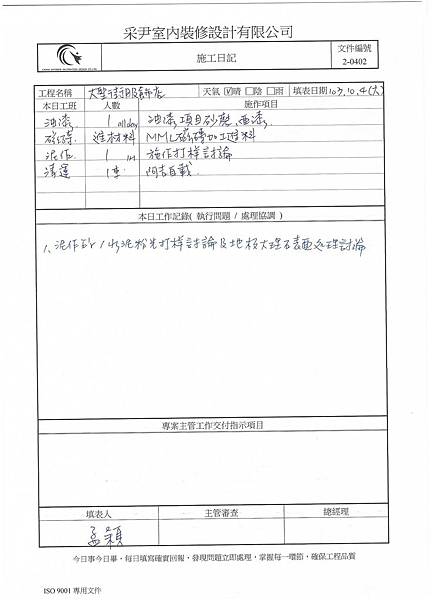 采尹室內裝修設計有限公司
施工日記
文件編號
2-0402
工程名稱 大墅街服飾店 天氣 ☑晴 □陰 □雨 填表日期 103.10.4(六)
本日工班 人數 施作項目
油漆 1 allday 油漆項目砂磨、面漆
磁磚 進材料 MML磁磚加工進料
泥作 1 施作打樣討論
清運 1車 阿吉自載
本日工作記錄( 執行問題 / 處理協調 )
1、泥作部1水泥粉光打樣討論及地板大理石表面處理討論
專案主管工作交付指示項目
填表人 主管審查 總經理
孟穎
今日事今日畢，每日填寫確實回報，發現問題立即處理，掌握每一環節，確保工程品質
ISO 9001 專用文件